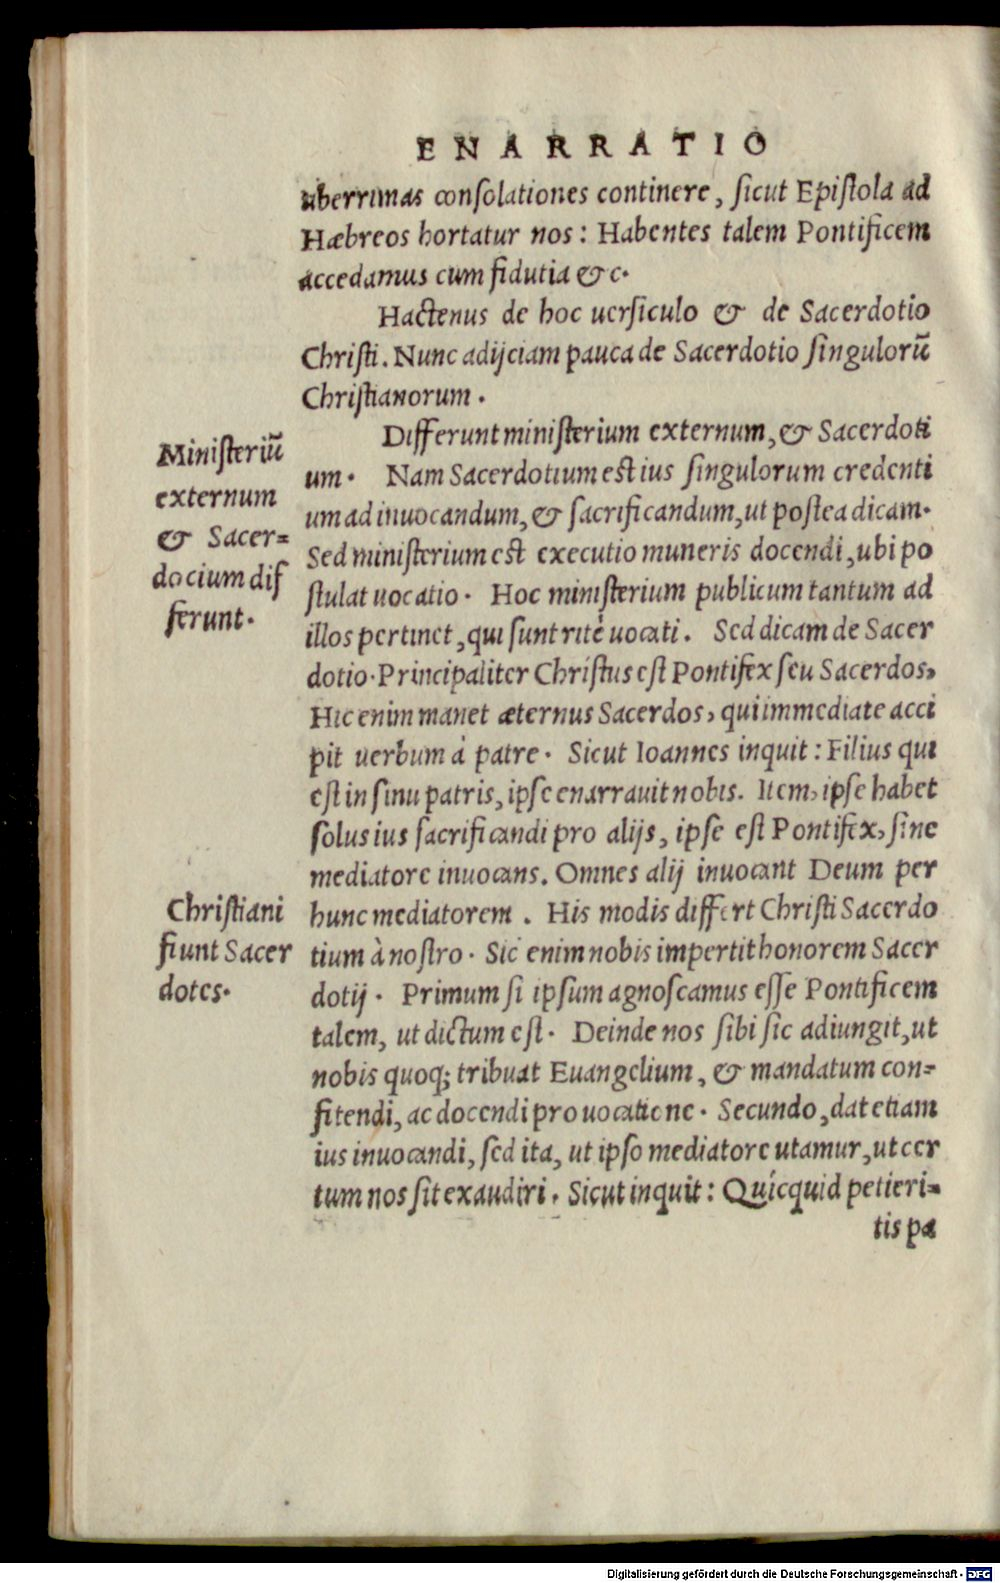 ENARRATIO
uberrimas consolationes continere, sicut Epistola ad
Hæbreos hortatur nos: Habentes talem Pontificem
accedamus cum fidutia &c.
Hactenus de hoc uersiculo & de Sacerdotio
Christi. Nunc adijciam pauca de Sacerdotio singulorũ
Christianorum.
Differunt ministerium externum, & Sacerdoti
um. Nam Sacerdotium est ius singulorum credenti
um ad inuocandum, & sacrificandum, ut postea dicam.
Sed ministerium est executio muneris docendi, ubi po
stulat uocatio. Hoc ministerium publicum tantum ad
illos pertinet, qui sunt ritè uocati. Sed dicam de Sacer
dotio. Principaliter Christus est Pontifex seu Sacerdos,
Hic enim manet æternus Sacerdos, qui immediate acci
pit uerbum à patre. Sicut Ioannes inquit: Filius qui
est in sinu patris, ipse enarrauit nobis. Item, ipse habet
solus ius sacrificandi pro alijs, ipse est Pontifex, sine
mediatore inuocans. Omnes alij inuocant Deum per
hunc mediatorem. His modis differt Christi Sacerdo
tium à nostro. Sic enim nobis impertit honorem Sacer
dotij. Primum si ipsum agnoscamus esse Pontificem
talem, ut dictum est. Deinde nos sibi sic adiungit, ut
nobis quoq; tribuat Euangelium, & mandatum con-
fitendi, ac docendi pro uocatione. Secundo, dat etiam
ius inuocandi, sed ita, ut ipso mediatore utamur, ut cer
tum nos sit exaudiri. Sicut inquit: Quicquid petieri-
tis pa
Ministeriũ
externum
& Sacer-
docium dif
ferunt.
Christiani
fiunt Sacer
dotes.
Digitalisierung gefördert durch die Deutsche Forschungsgemeinschaft - DFG